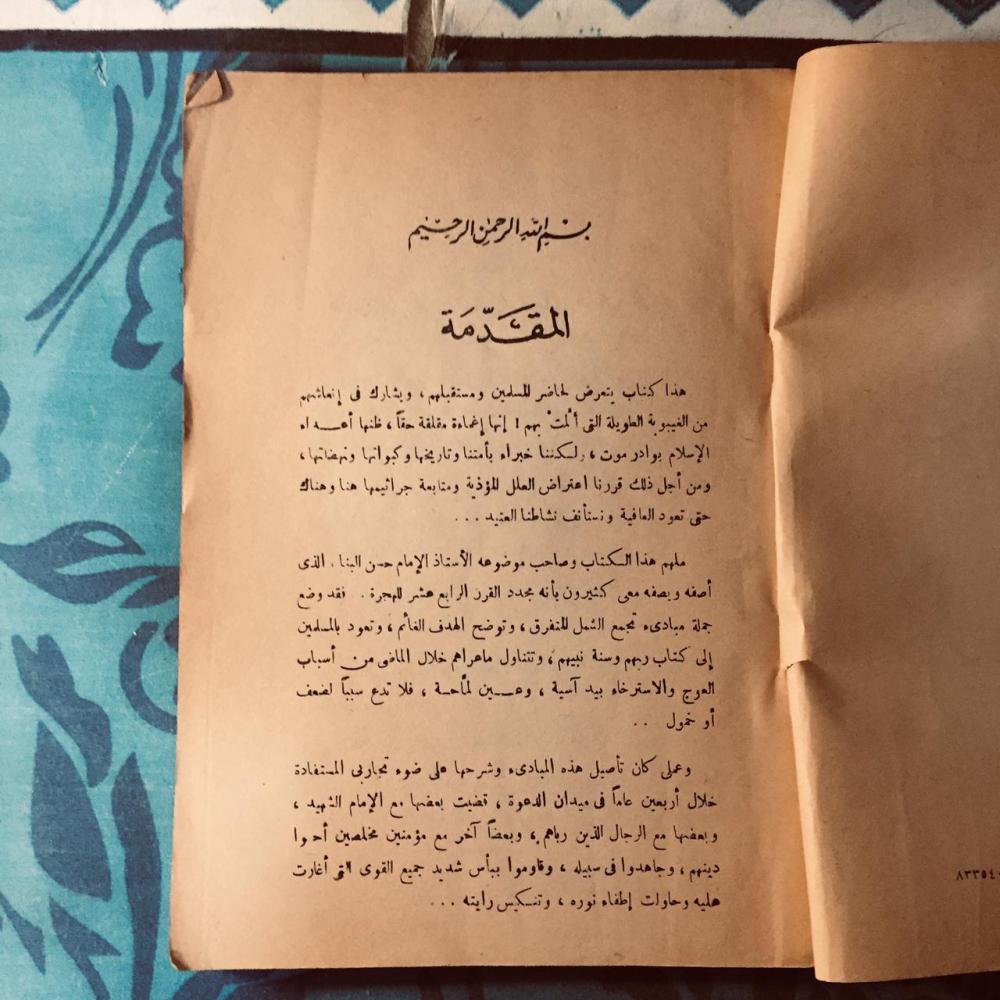 بسم الله الرحمن الرحيم
المقدّمة
هذا كتاب يتعرض لحاضر المسلمين ومستقبلهم ، ويشارك فى إنعاشهم
من الغيبوبة الطويلة التى ألمت بهم ! إنها إغماءة مقلقة حقاً ، ظنها أعـــداء
الإسلام بوادر موت ، ولكننا خبراء بأمتنا وتاريخها وكبواتها ونهضاتها ،
ومن أجل ذلك قررنا اعتراض العلل المؤذية ومتابعة جراثيمها هنا وهناك
حتى تعود العافية ونستأنف نشاطنا العتيد ...
ملهم هذا الكتاب وصاحب موضوعه الأستاذ الإمام حسن البنا . الذى
أصفه ويصفه معى كثيرون بأنه مجدد القرن الرابع عشر للهجرة . فقد وضع
جملة مبادىء تجمع الشمل المتفرق ، وتوضح الهدف الغائم ، وتعود بالمسلمين
إلى كتاب ربهم وسنة نبيهم ، وتتناول ماعراهم خلال الماضى من أسباب
العوج والاسترخاء بيد آسية ، وعـــين لماحة ، فلا تدع سبباً لضعف
أو خمول ..
وعملى كان تأصيل هذه المبادىء وشرحها على ضوء تجاربى المستفادة
خلال أربعين عاماً فى ميدان الدعوة ، قضيت بعضها مع الإمام الشهيد ،
وبعضها مع الرجال الذين رباهم ، وبعضاً آخر مع مؤمنين مخلصين أحبوا
دينهم ، وجاهدوا فى سبيله ، وقاوموا ببأس شديد جميع القوى التى أغارت
عليه وحاولت إطفاء نوره ، وتنكيس رايته ...